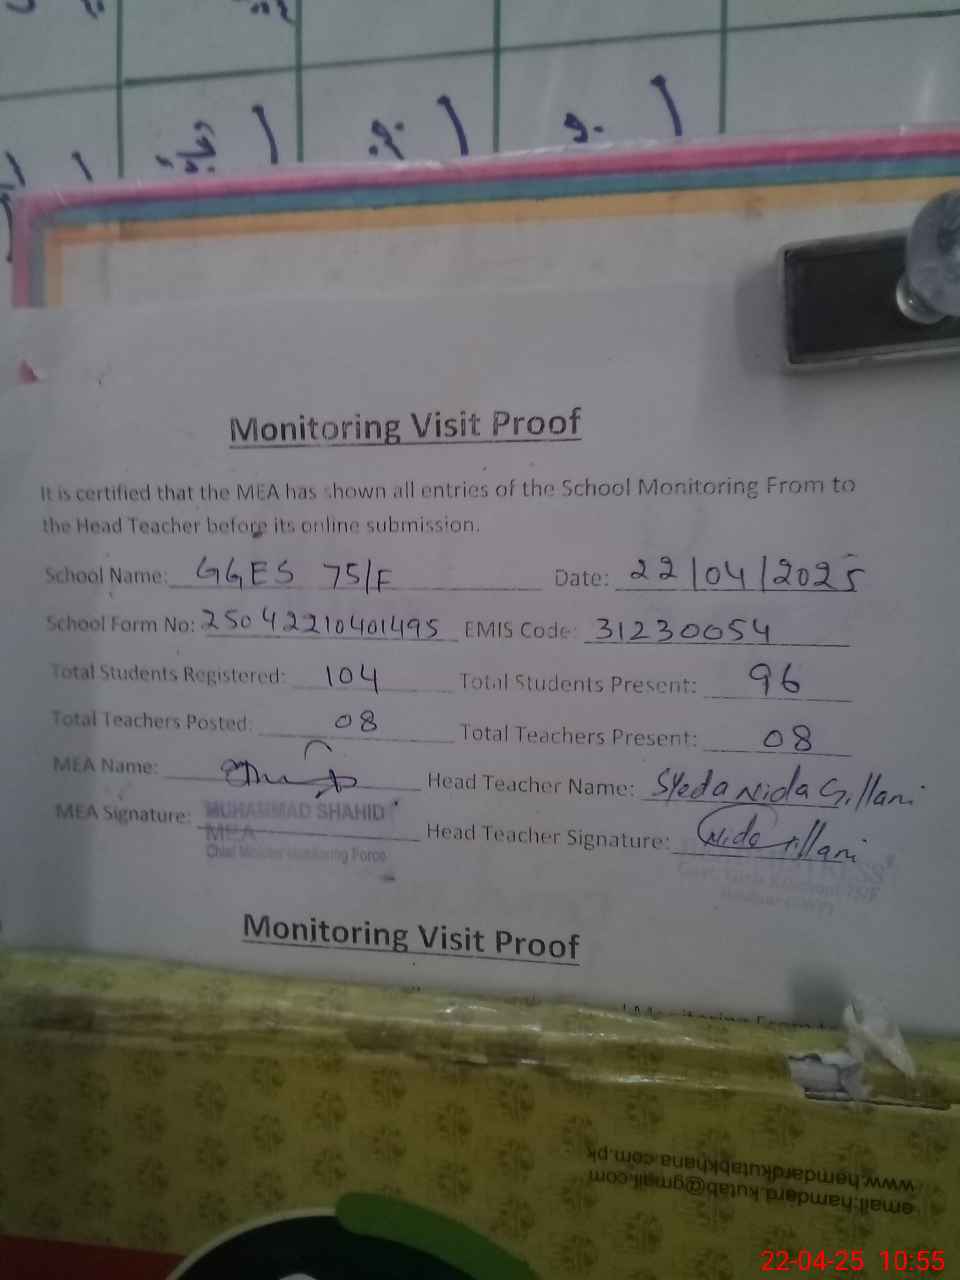 Monitoring Visit Proof
It is certified that the MEA has shown all entries of the School Monitoring From to
the Head Teacher before its online submission.
School Name: GGES 75/F Date: 22/04/2025
School Form No: 25042210401495 EMIS Code: 31230054
Total Students Registered: 104 Total Students Present: 96
Total Teachers Posted: 08 Total Teachers Present: 08
MEA Name: Head Teacher Name: Syeda Nida Gillani
MEA Signature: MUHAMMAD SHAHID
MEA
Chief Minister Monitoring Force
Head Teacher Signature: Nida Gillani
Monitoring Visit Proof
www.hamdardkutabkhana.com.pk
email:hamdard.kutab@gmail.com
22-04-25 10:55